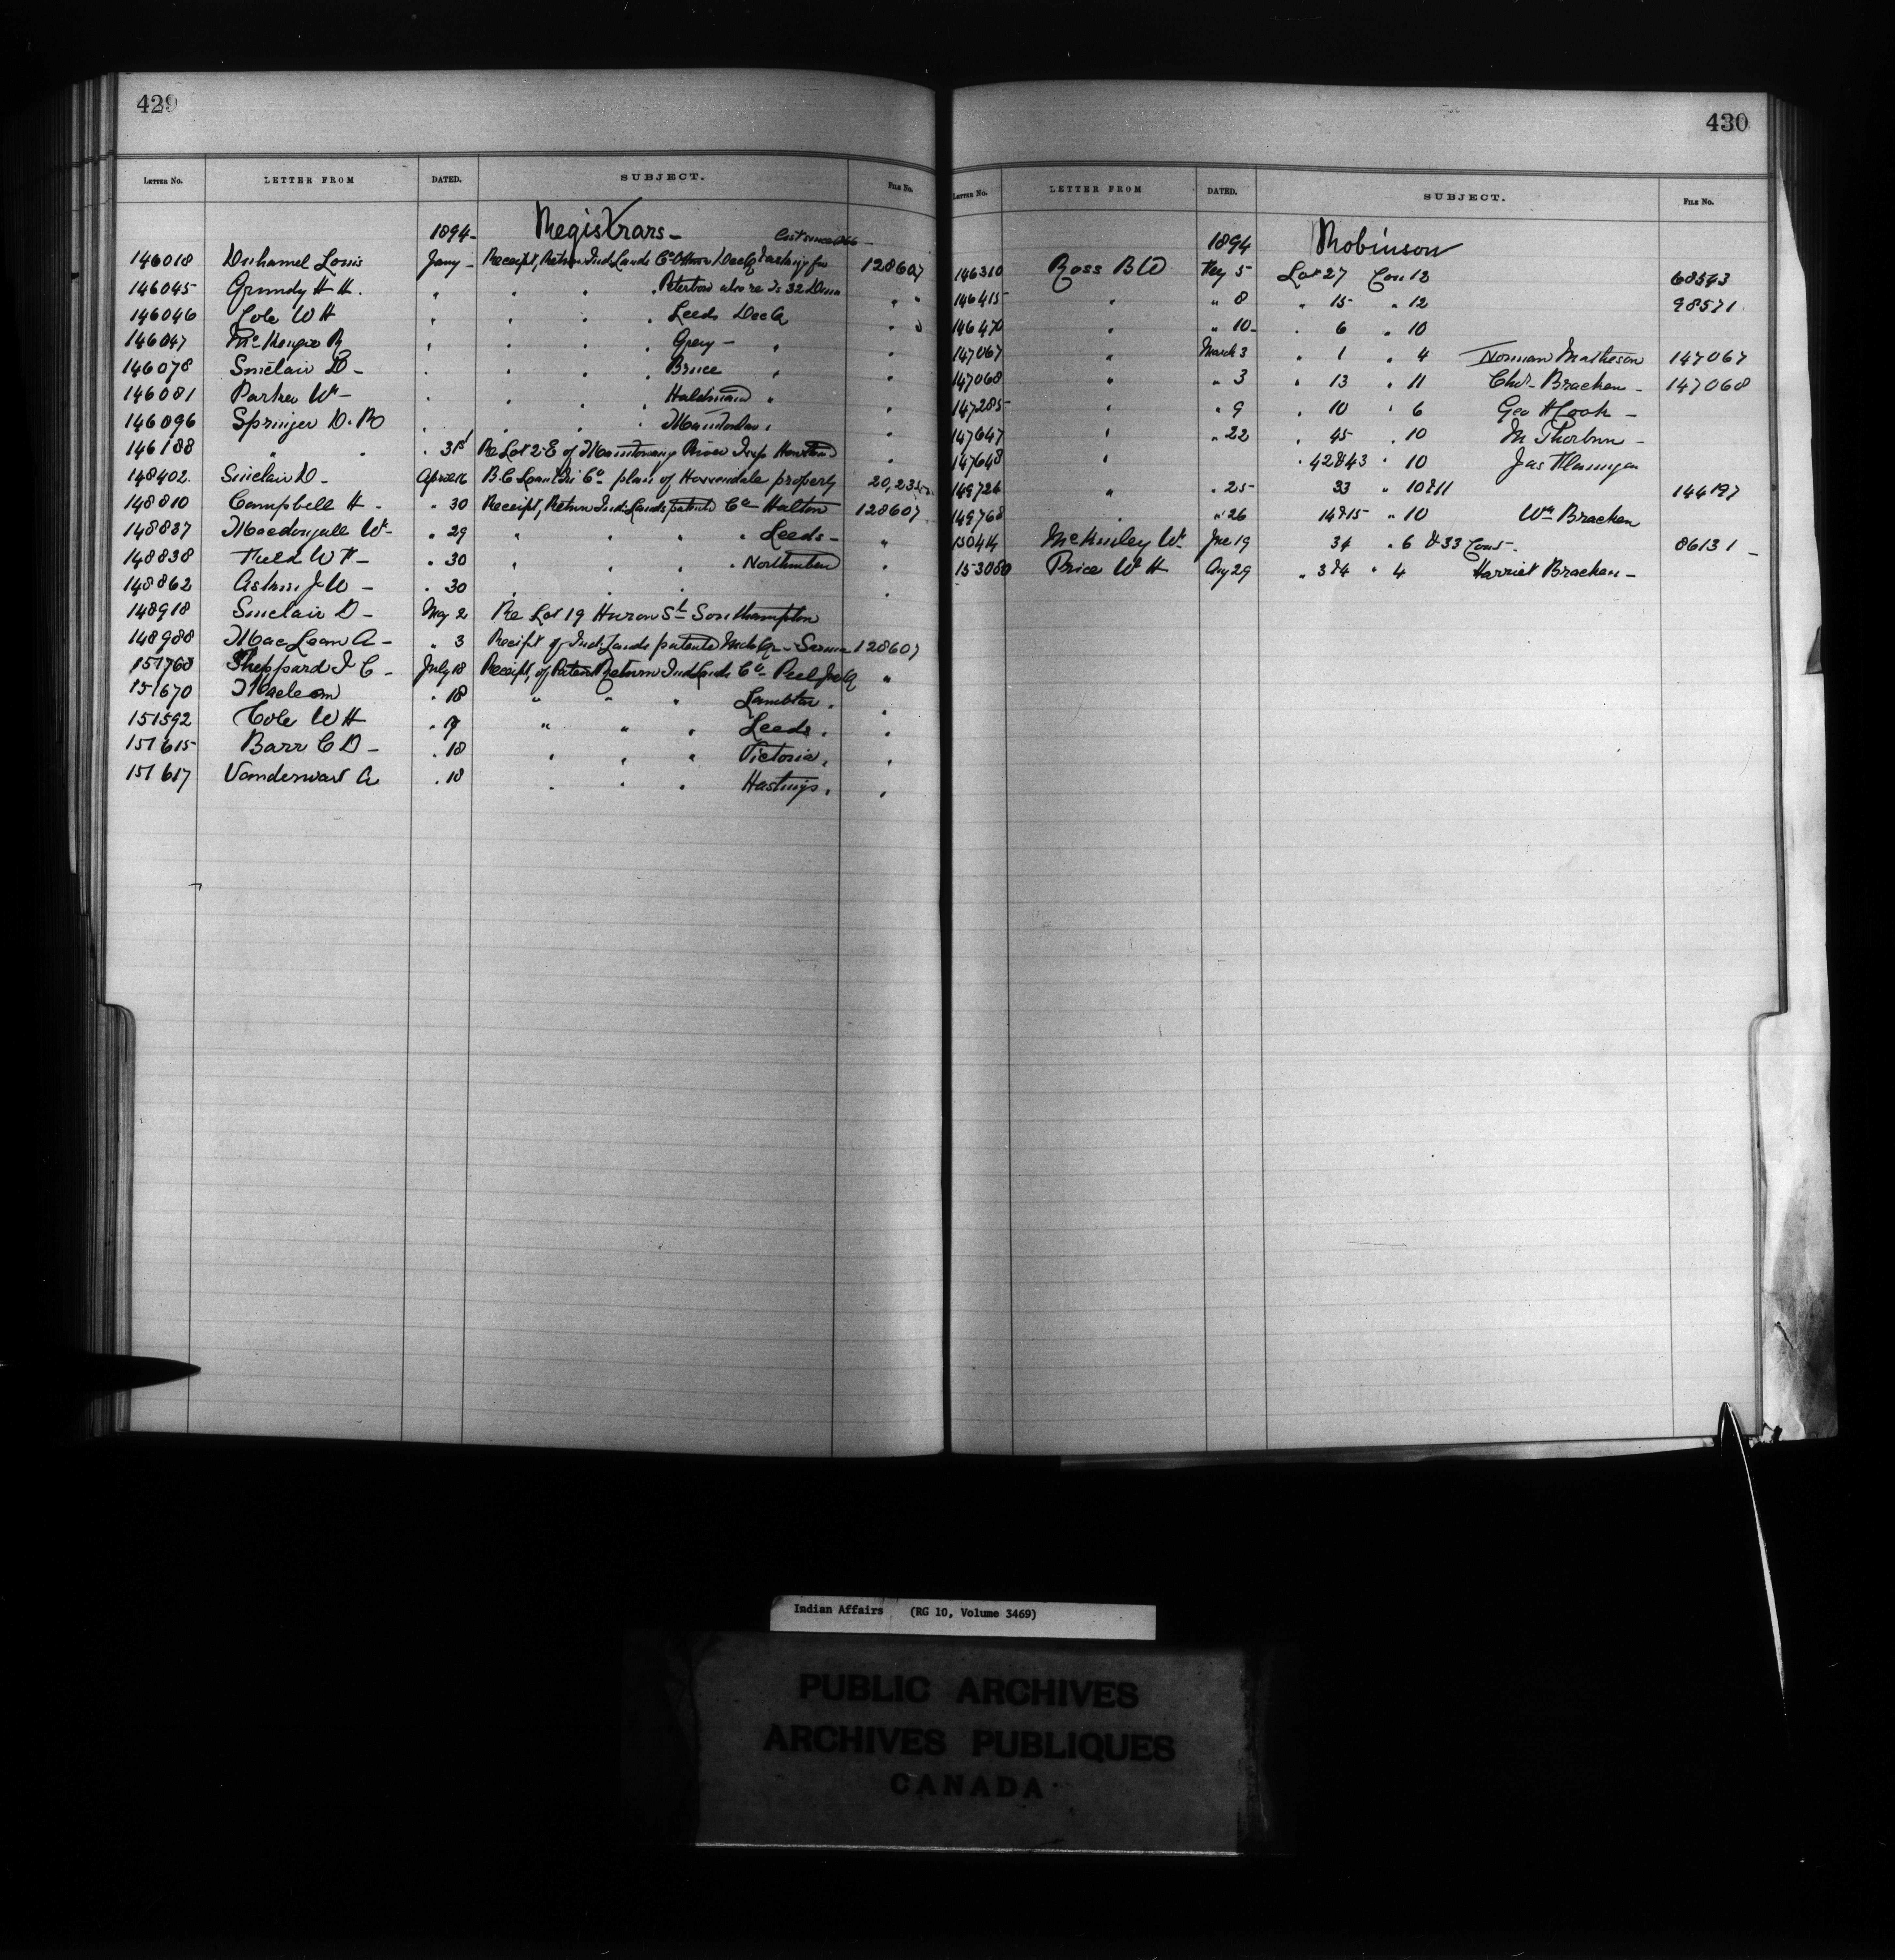 429
LETTER No. LETTER FROM DATED. SUBJECT. FILE No.
1894- Registrars-
146018 Duhamel Louis Jany - Receipt, Return Ind Lands Co Ottawa Dec Q 128607
146045 Grundy H H. " " " Peterboro also re Is 32 " "
146046 Cole W H " " " " Leeds Dec Q " "
146047 McKenzie R " " " " Grey - " "
146078 Sinclair D - " " " " Bruce " "
146081 Parker Wm - " " " " Haldimand " "
146096 Springer D. B " " " " "
146188 " " . 31st Re Lot 2 E of Manitowaning River Twp Howland "
148402 Sinclair D - April 16 plan of property
148810 Campbell H - . 30 Receipt, Return Ind. Lands patented Co Halton 128607
148837 Macdougall Wm - . 29 " " " " Leeds - "
148838 Field W H - . 30 " " " . "
148862 J W - . 30 " " " . "
148918 Sinclair D - May 2 Re Lot 19 Huron St Southampton
148988 MacLean A - " 3 Receipt of Ind Lands patented Mch Qr - Sarnia 128607
151768 Sheppard J C - July 18 Receipt, of Return Ind Lands Co - Peel Jne Q "
151670 . 18 " " " Lambton . "
151592 Cole W H . 9 " " " Leeds . "
151615 Barr C D - . 18 " " " Victoria , "
151617 Vandervoort A . 18 " " " Hastings , "
430
LETTER No. LETTER FROM DATED. SUBJECT. FILE No.
1894 Robinson
146310 Ross B W Fey 5 Lot 27 Con 12 68543
146415 " " 8 " 15 " 12 98571
146470 " " 10 - " 6 " 10
147067 " March 3 " 1 " 4 Norman Matheson 147067
147068 " " 3 " 13 " 11 Chas - Bracken - 147068
147285 " " 9 " 10 " 6 Geo H Cook -
147647 " " 22 " 45 " 10 M Thorburn -
147648 " " 42 & 43 " 10 Jas Flanigan
149724 " . 25 - 33 " 10 & 11 144197
149768 . " 26 14 & 15 " 10 Wm Bracken
McKinley Wm Jne 19 34 " 6 & 33 Con 5 - 86131 -
153080 Price W H Aug 29 " 3 & 4 " 4 Harriet Bracken -
Indian Affairs (RG 10, Volume 3469)
PUBLIC ARCHIVES
ARCHIVES PUBLIQUES
CANADA